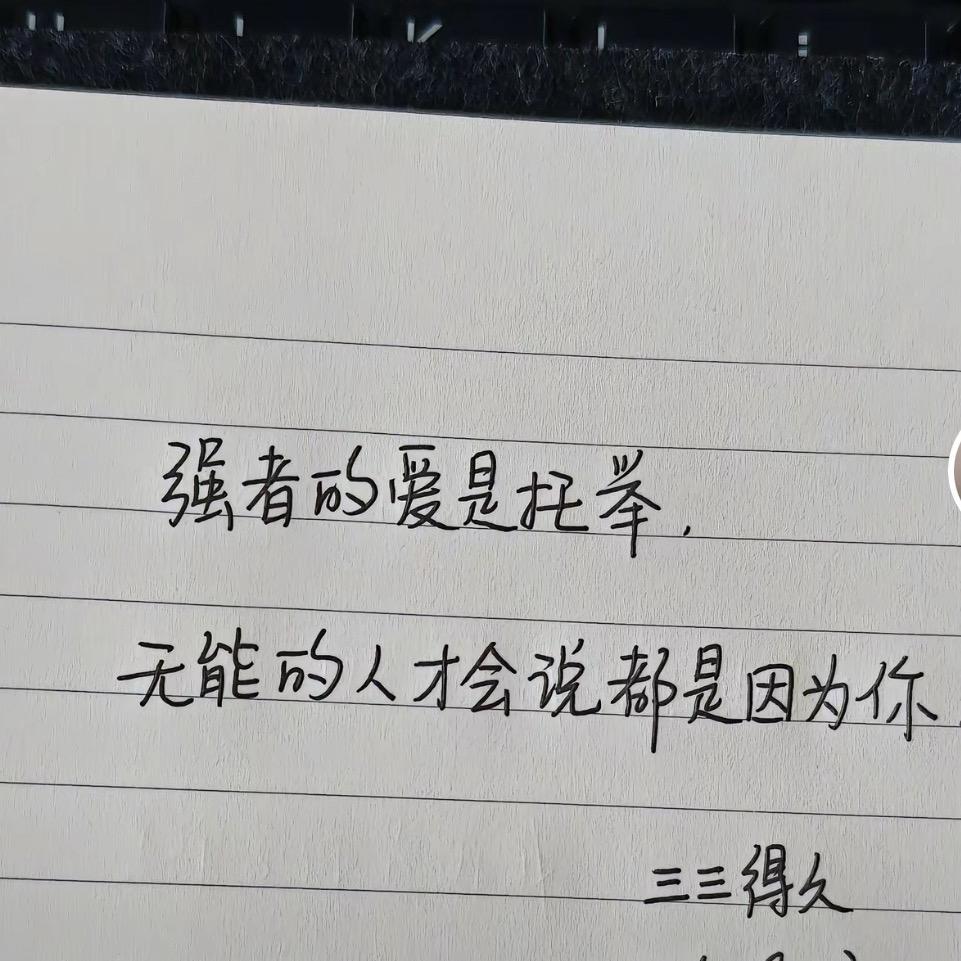 强者的爱是托举.
无能的人才会说都是因为你.
三三得久